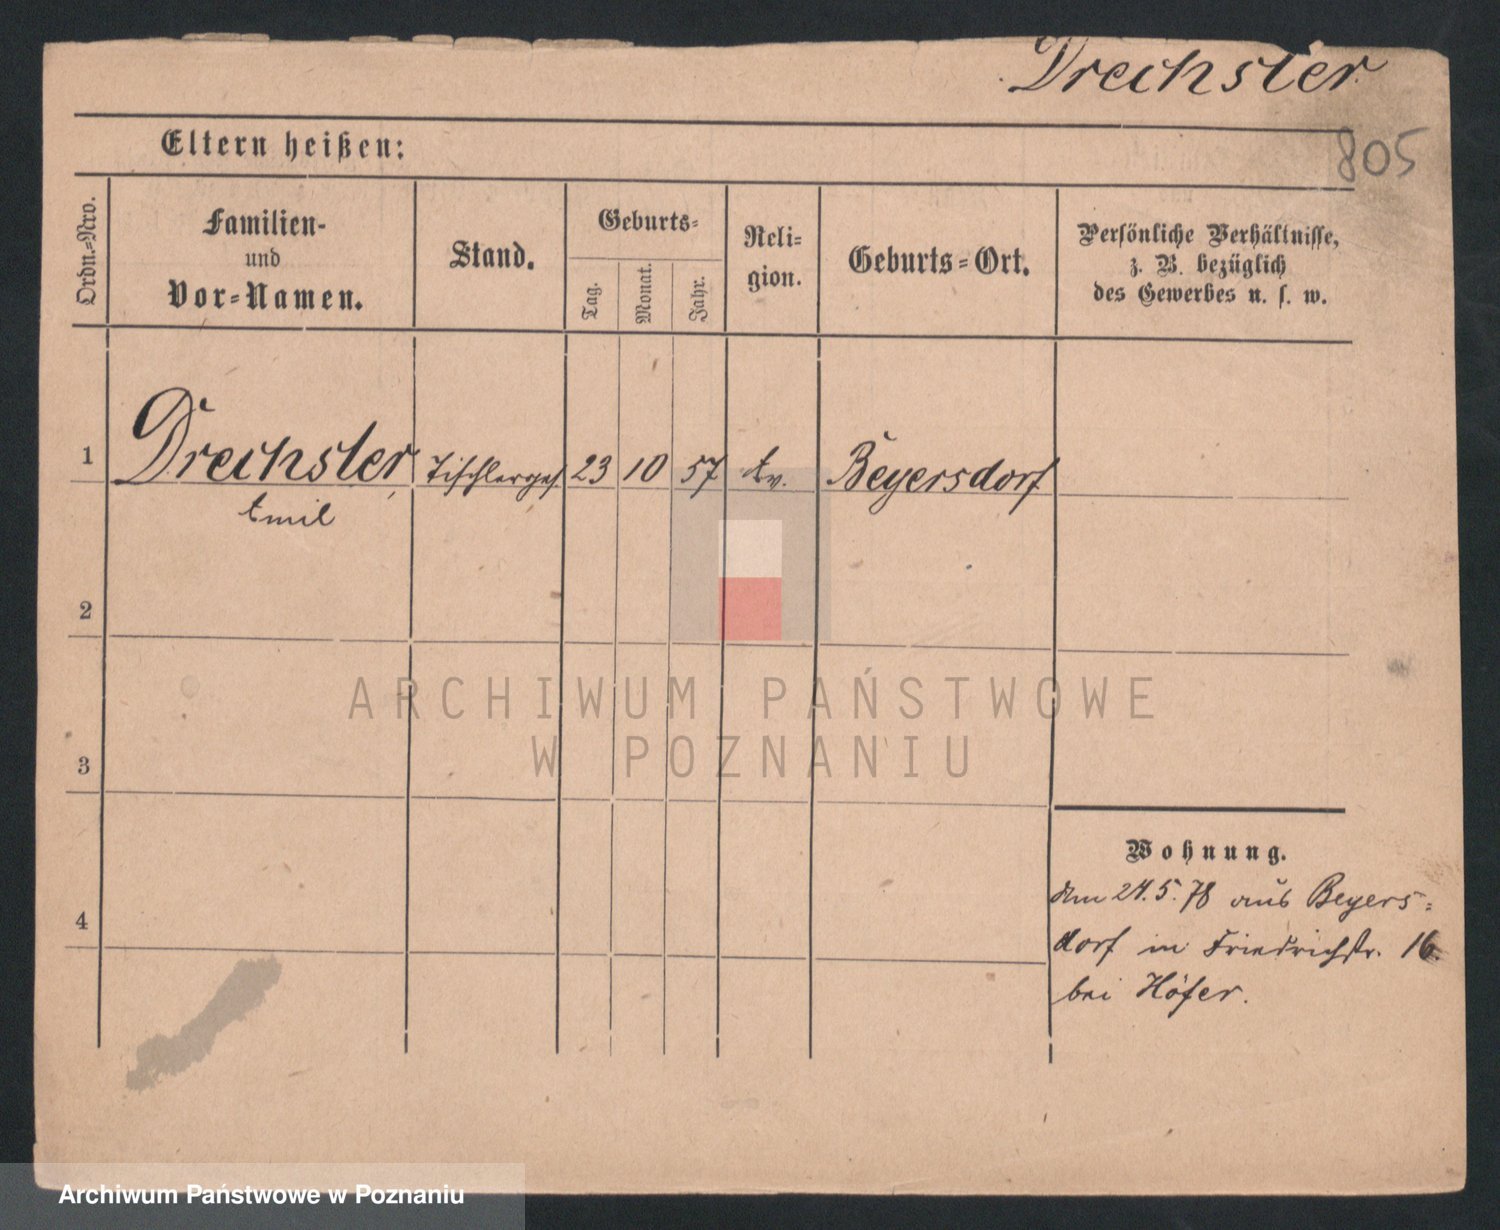 Drechsler
805
Eltern heißen:
Ordn.=Nro.
Familien-
und
Vor=Namen.
Stand.
Geburts=
Tag.
Monat.
Jahr.
Reli=
gion.
Geburts=Ort.
Persönliche Verhältnisse,
z. B. bezüglich
des Gewerbes u. s. w.
1 Drechsler Tischlerges. 23 10 57 Ev. Beyersdorf
Emil
2
3
4
Wohnung.
Am 24.5.78 aus Beyers=
dorf in Friedrichstr. 16
bei Höfer.
ARCHIWUM PAŃSTWOWE
W POZNANIU
Archiwum Państwowe w Poznaniu